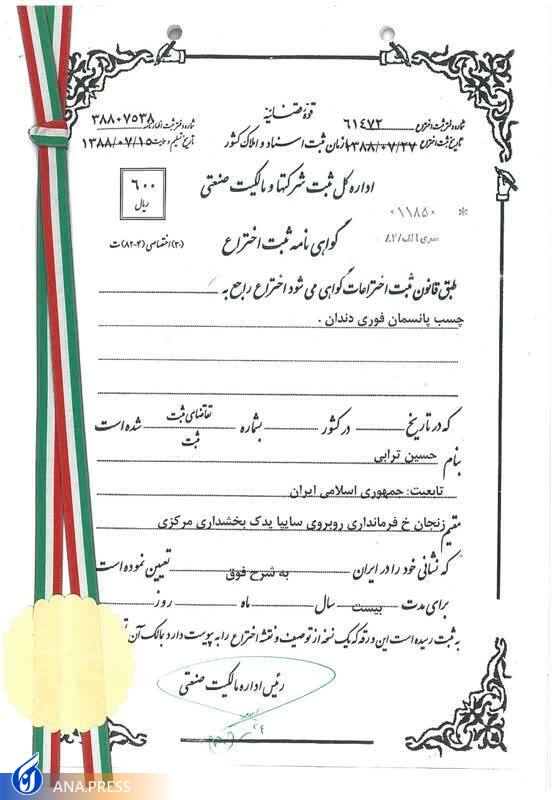 قوهٔ قضائیه
شماره دفتر ثبت اختراع ۶۱۴۷۲
شماره دفتر ثبت اظهارنامه ۳۸۸۰۷۵۳۸
تاریخ ثبت اختراع ۱۳۸۸/۰۷/۲۷
سازمان ثبت اسناد و املاک کشور
تاریخ تسلیم ۱۳۸۸/۰۷/۱۵
اداره کل ثبت شرکتها و مالکیت صنعتی
۶۰۰
ریال
* ۰۱۱۸۵۰
سری الف/۸۲
گواهی نامه ثبت اختراع
(۳۰) اختصاصی (۴-۸۲) ث
طبق قانون ثبت اختراعات گواهی می شود اختراع راجع به
چسب پانسمان فوری دندان .
که در تاریخ در کشور بشماره تقاضای ثبت شده است
ثبت
بنام حسین ترابی
تابعیت: جمهوری اسلامی ایران
مقیم زنجان خ فرمانداری روبروی سایپا یدک بخشداری مرکزی
که نشانی خود را در ایران به شرح فوق تعیین نموده است
برای مدت بیست سال ماه روز
به ثبت رسیده است این ورقه که یک نسخه از توصیف و نقشه اختراع را به پیوست دارد بمالک آن
رئیس اداره مالکیت صنعتی
ANA.PRESS